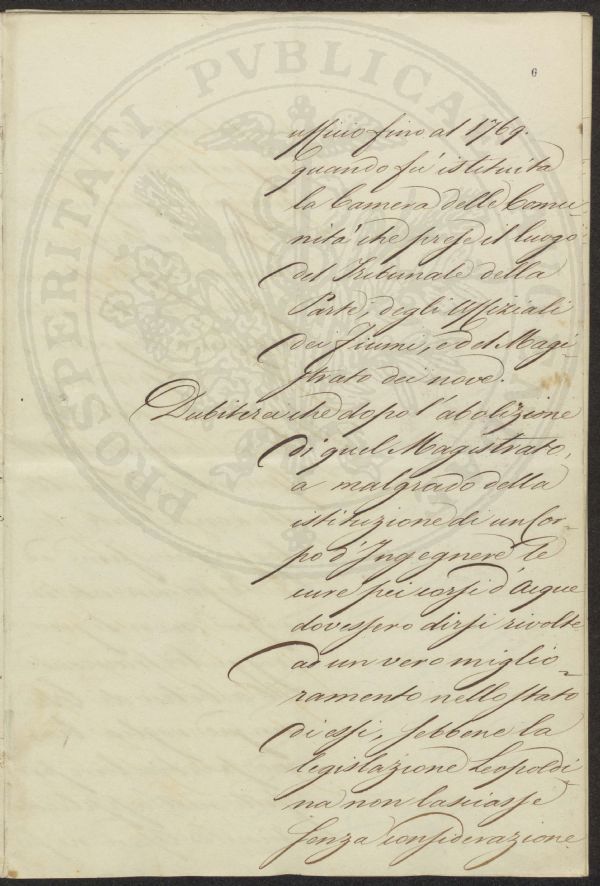 6
uffizio fino al 1769.
quando fu istituita
la Camera delle Comu-
nità che prese il luogo
del Tribunale della
Parte, degli Uffiziali
dei Fiumi, e del Magi-
strato dei nove.
Dubitera che dopo l'abolizione
di quel Magistrato,
a malgrado della
istituzione di un Cor-
po d'Ingegneri le
cure pei corsi d'Acque
dovessero dirsi rivolte
ad un vero miglio-
ramento nello stato
di essi, sebbene la
legislazione Leopoldi-
na non lasciasse
senza considerazione
PROSPERITATI PVBLICAE